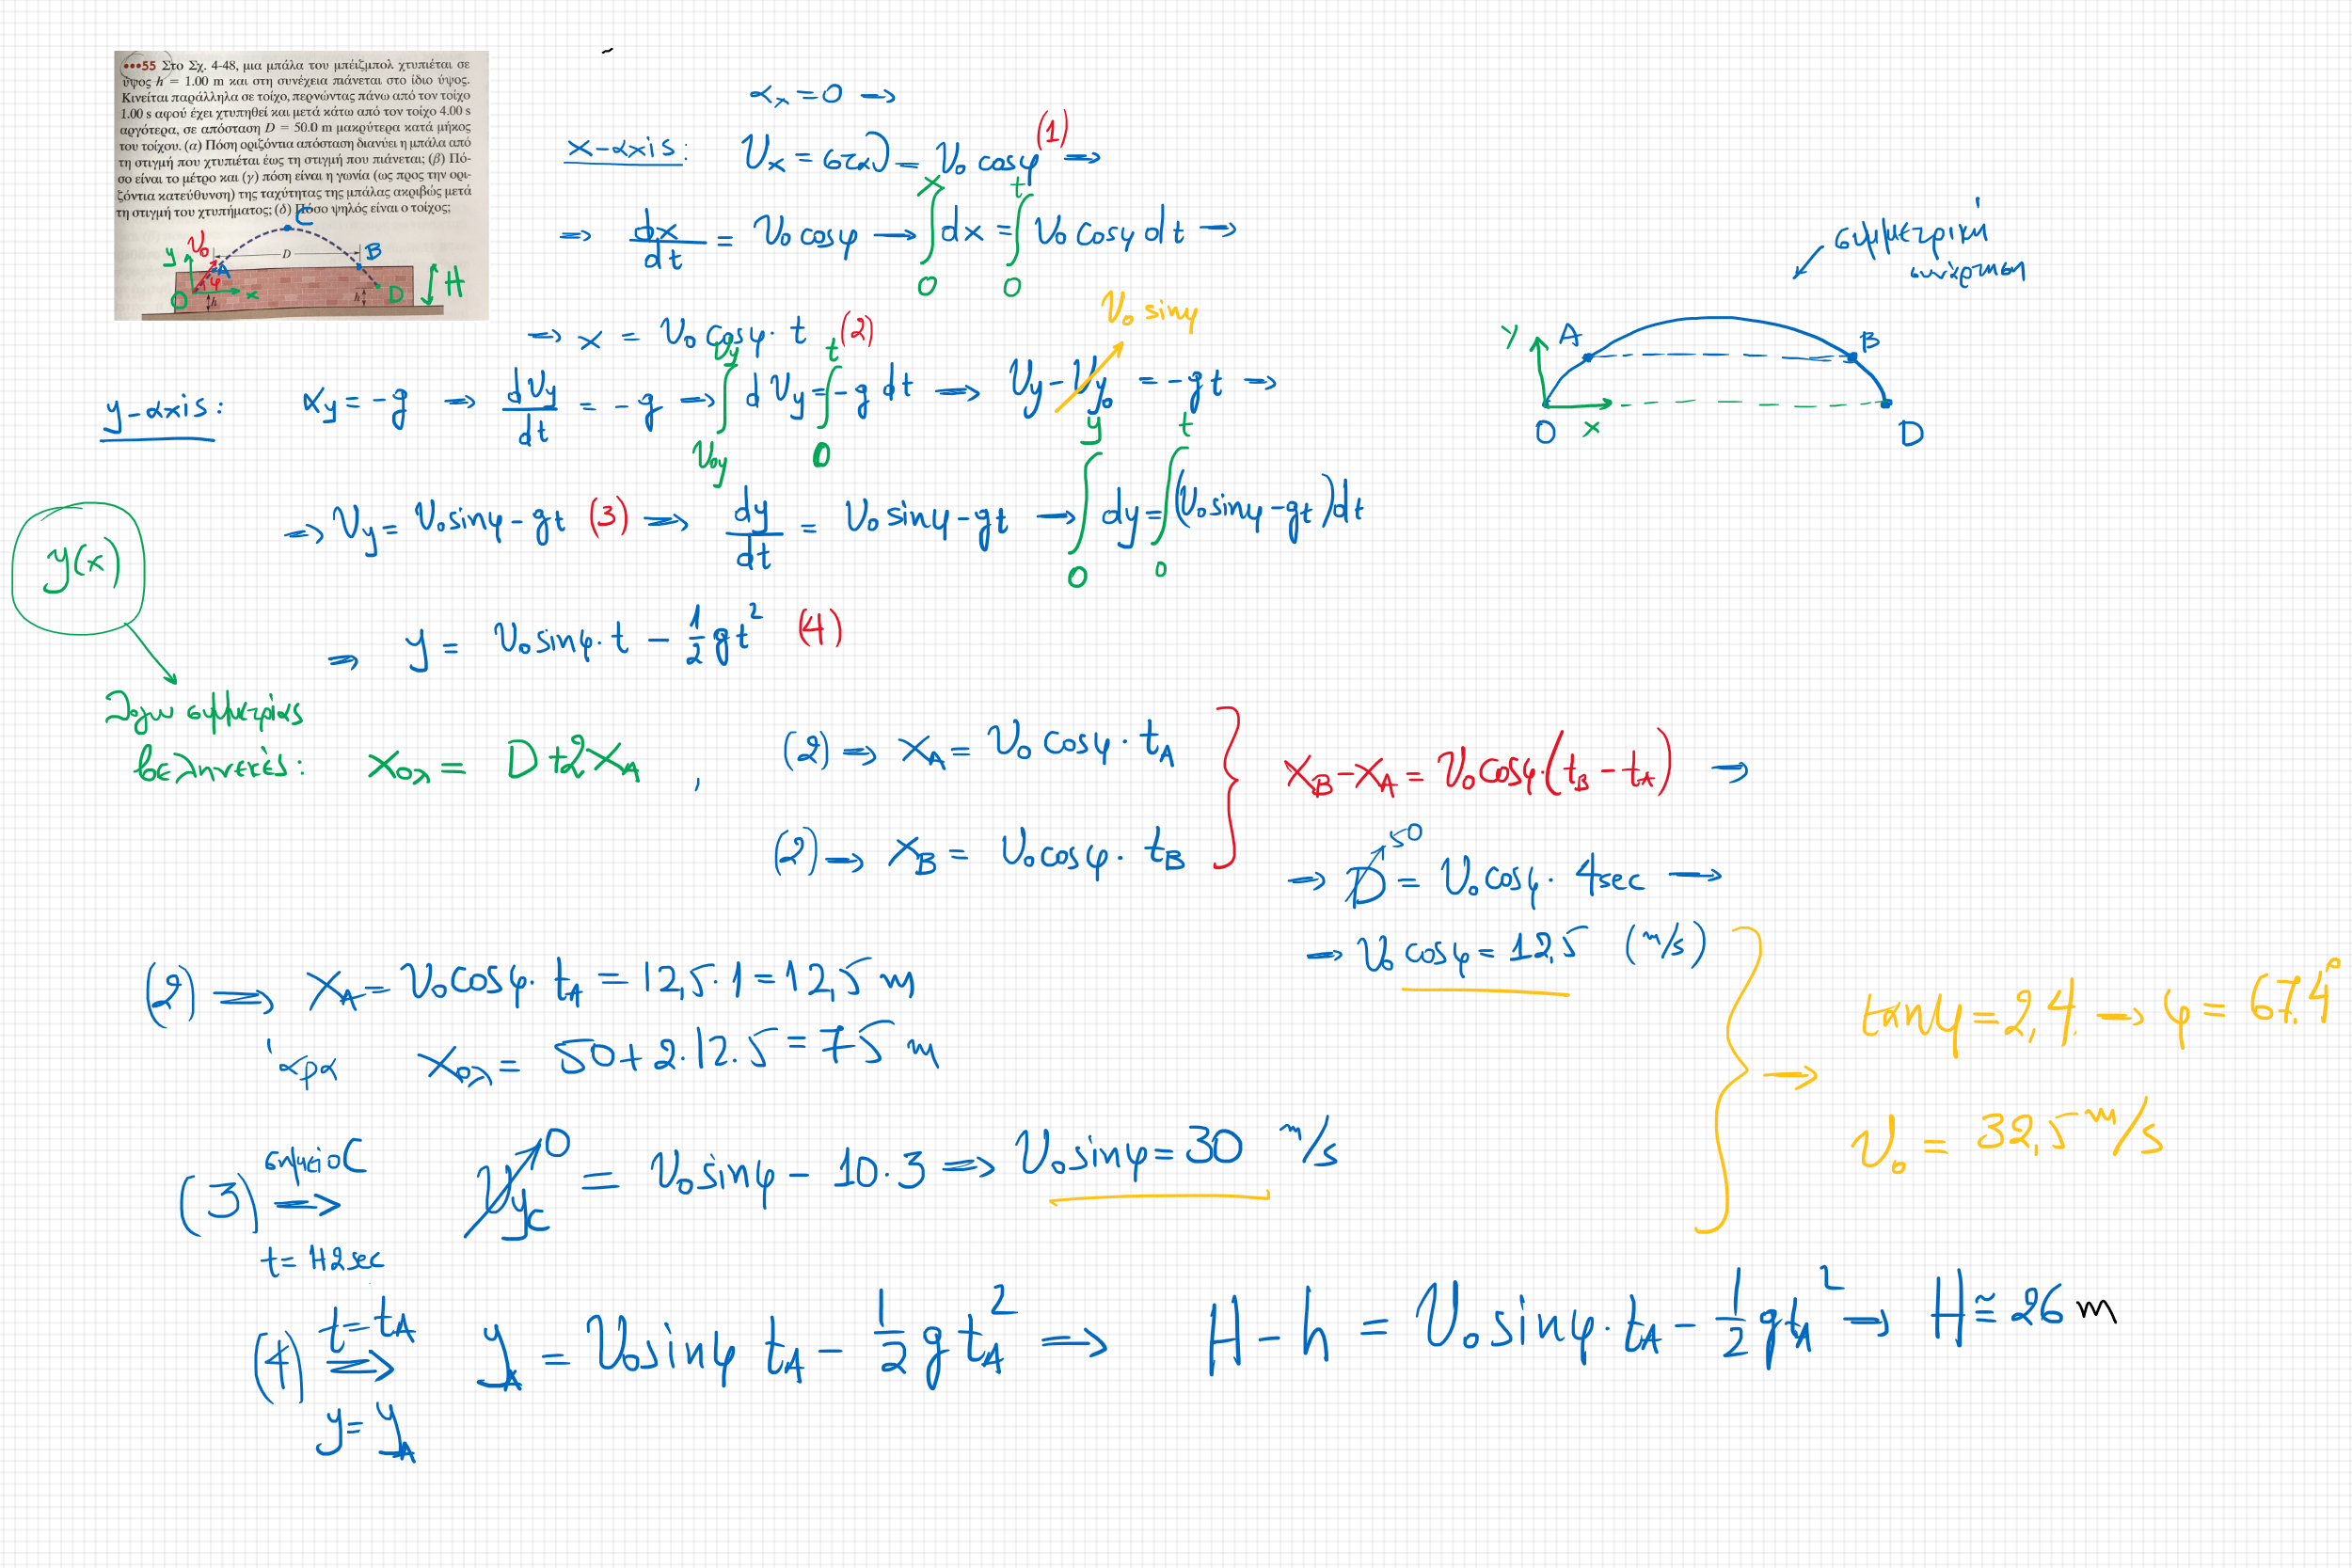 •••55 Στο Σχ. 4-48, μια μπάλα του μπέιζμπολ χτυπιέται σε
ύψος h = 1.00 m και στη συνέχεια πιάνεται στο ίδιο ύψος.
Κινείται παράλληλα σε τοίχο, περνώντας πάνω από τον τοίχο
1.00 s αφού έχει χτυπηθεί και μετά κάτω από τον τοίχο 4.00 s
αργότερα, σε απόσταση D = 50.0 m μακρύτερα κατά μήκος
του τοίχου. (α) Πόση οριζόντια απόσταση διανύει η μπάλα από
τη στιγμή που χτυπιέται έως τη στιγμή που πιάνεται; (β) Πό-
σο είναι το μέτρο και (γ) πόση είναι η γωνία (ως προς την ορι-
ζόντια κατεύθυνση) της ταχύτητας της μπάλας ακριβώς μετά
τη στιγμή του χτυπήματος; (δ) Πόσο ψηλός είναι ο τοίχος;
C
y V₀ A D B
O φ x h h D H
αx = 0 →
x-αxis: Vx = σταθ = V₀ cosφ (1) ⇒
⇒ dx/dt = V₀ cosφ → ∫₀ˣ dx = ∫₀ᵗ V₀ cosφ dt →
→ x = V₀ cosφ · t (2)
συμμετρική
συνάρτηση
y A B
O x D
y-αxis: αy = -g → dVy/dt = -g → ∫_V₀y^Vy dVy = ∫₀ᵗ -g dt → Vy - Vy₀ = -gt →
V₀ sinφ
⇒ Vy = V₀ sinφ - gt (3) ⇒ dy/dt = V₀ sinφ - gt → ∫₀ʸ dy = ∫₀ᵗ (V₀ sinφ - gt) dt
y(x)
⇒ y = V₀ sinφ · t - 1/2 gt² (4)
λογω συμμετρίας
βεληνεκές: xολ = D + 2xA , (2) ⇒ xA = V₀ cosφ · tA
(2) → xB = V₀ cosφ · tB
xB - xA = V₀ cosφ · (tB - tA) →
→ D = V₀ cosφ · 4sec →
50
→ V₀ cosφ = 12,5 (m/s)
(2) ⇒ xA = V₀ cosφ · tA = 12,5 · 1 = 12,5 m
άρα xολ = 50 + 2 · 12.5 = 75 m
→ tanφ = 2,4. → φ = 67.4°
v₀ = 32,5 m/s
(3) ⇒ σημείο C t = 1+2sec VyC = V₀ sinφ - 10 · 3 ⇒ V₀ sinφ = 30 m/s
0
(4) ⇒ t = tA y = yA yA = V₀ sinφ tA - 1/2 g tA² ⇒ H - h = V₀ sinφ · tA - 1/2 g tA² → H ≅ 26 m